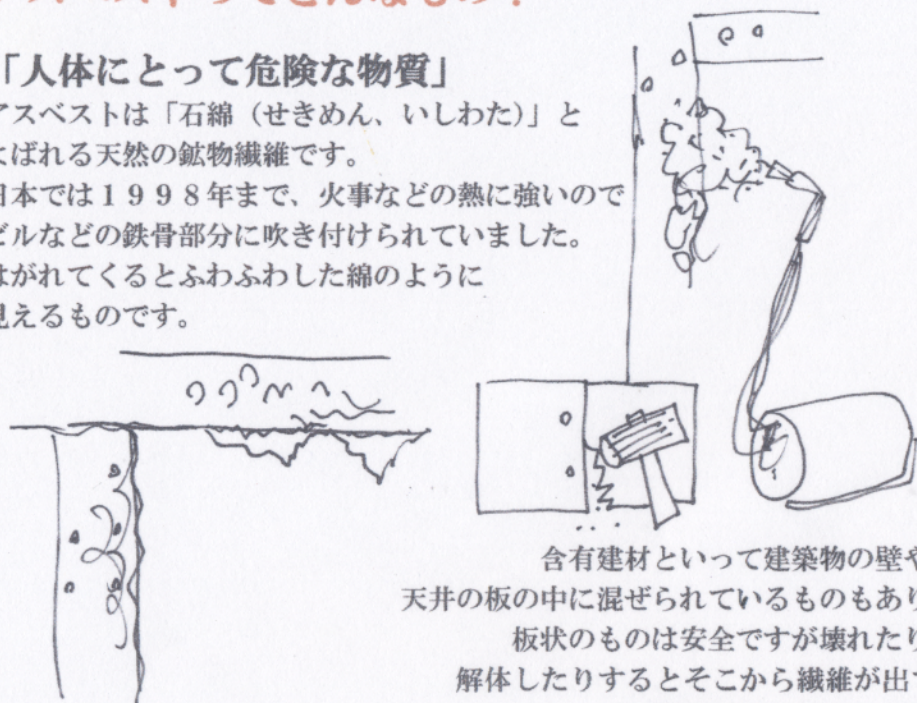 「人体にとって危険な物質」
アスベストは「石綿（せきめん、いしわた）」と
よばれる天然の鉱物繊維です。
日本では１９９８年まで、火事などの熱に強いので
ビルなどの鉄骨部分に吹き付けられていました。
はがれてくるとふわふわした綿のように
見えるものです。
含有建材といって建築物の壁や
天井の板の中に混ぜられているものもあり
板状のものは安全ですが壊れたり
解体したりするとそこから繊維が出て